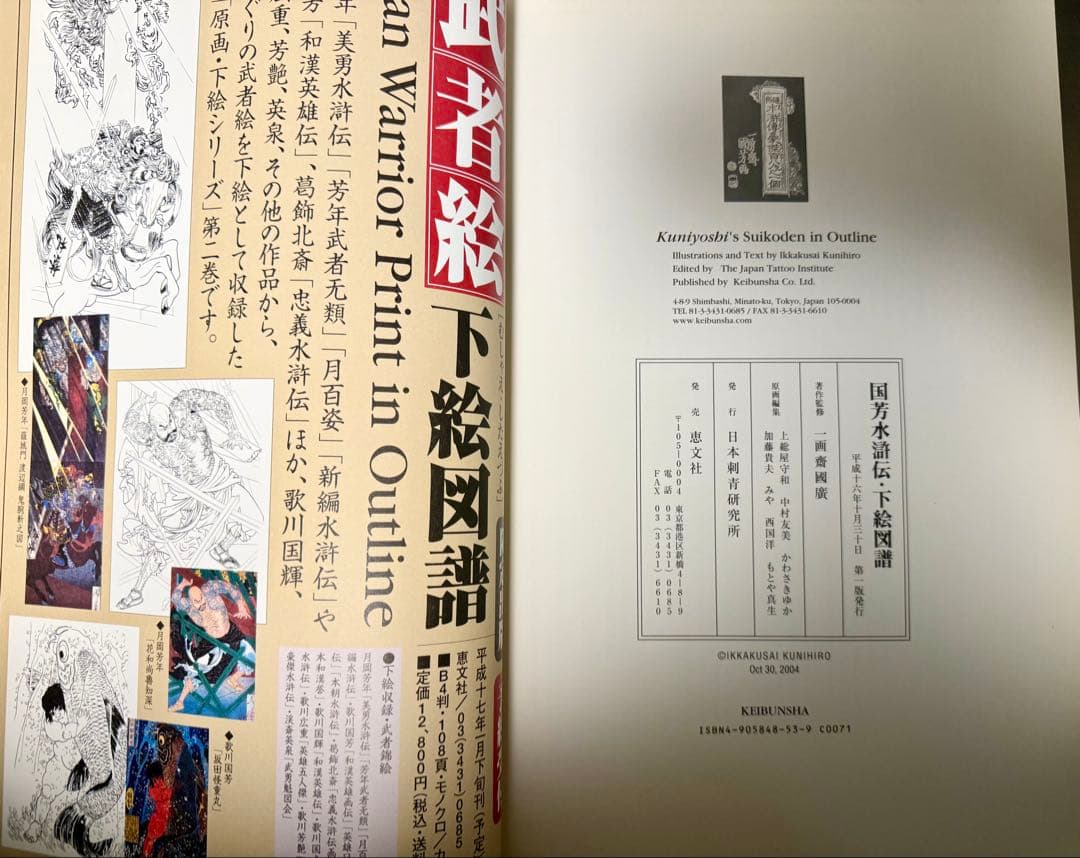 武者絵
下絵図譜
「むしゃえ・したえずふ」
an Warrior Print in Outline
年「美勇水滸伝」「芳年武者无類」「月百姿」「新編水滸伝」や
芳「和漢英雄伝」、葛飾北斎「忠義水滸伝」ほか、歌川国輝、
重、芳艶、英泉、その他の作品から、
ぐりの武者絵を下絵として収録した
「原画・下絵シリーズ」第二巻です。
◆月岡芳年「羅城門 渡辺綱 鬼腕斬之図」
◆月岡芳年
「花和尚魯知深」
◆歌川国芳
「坂田怪童丸」
平成十七年一月下旬刊(予定)
恵文社/03(3431)0685
■B4判・108頁・モノクロ/カ
■定価12,800円(税込・送料
●下絵収録・武者錦絵
月岡芳年「美勇水滸伝」「芳年武者无類」「月百
編水滸伝」・歌川国芳「和漢英雄画伝」「英雄日
伝」「本朝水滸伝」・葛飾北斎「忠義水滸伝画
本和漢誉」・歌川国輝「和漢英雄伝」・歌川国
水滸伝」・歌川広重「英雄五人傑」・歌川芳艶
豪傑水滸伝」・渓斎英泉「武勇魁図会」
Kuniyoshi's Suikoden in Outline
Illustrations and Text by Ikkakusai Kunihiro
Edited by The Japan Tattoo Institute
Published by Keibunsha Co. Ltd.
4-8-9 Shimbashi, Minato-ku, Tokyo, Japan 105-0004
TEL 81-3-3431-0685 / FAX 81-3-3431-6610
www.keibunsha.com
国芳水滸伝・下絵図譜
平成十六年十月三十日 第一版発行
著作監修 一画齋國廣
原画編集 上総屋守和 中村友美 かわさきゆか
加藤貴夫 みや 西国洋 もとや真生
発行 日本刺青研究所
発売 恵文社
〒105-0004 東京都港区新橋4-8-9
電話 03(3431)0685
FAX 03(3431)6610
©IKKAKUSAI KUNIHIRO
Oct 30, 2004
KEIBUNSHA
ISBN4-905848-53-9 C0071